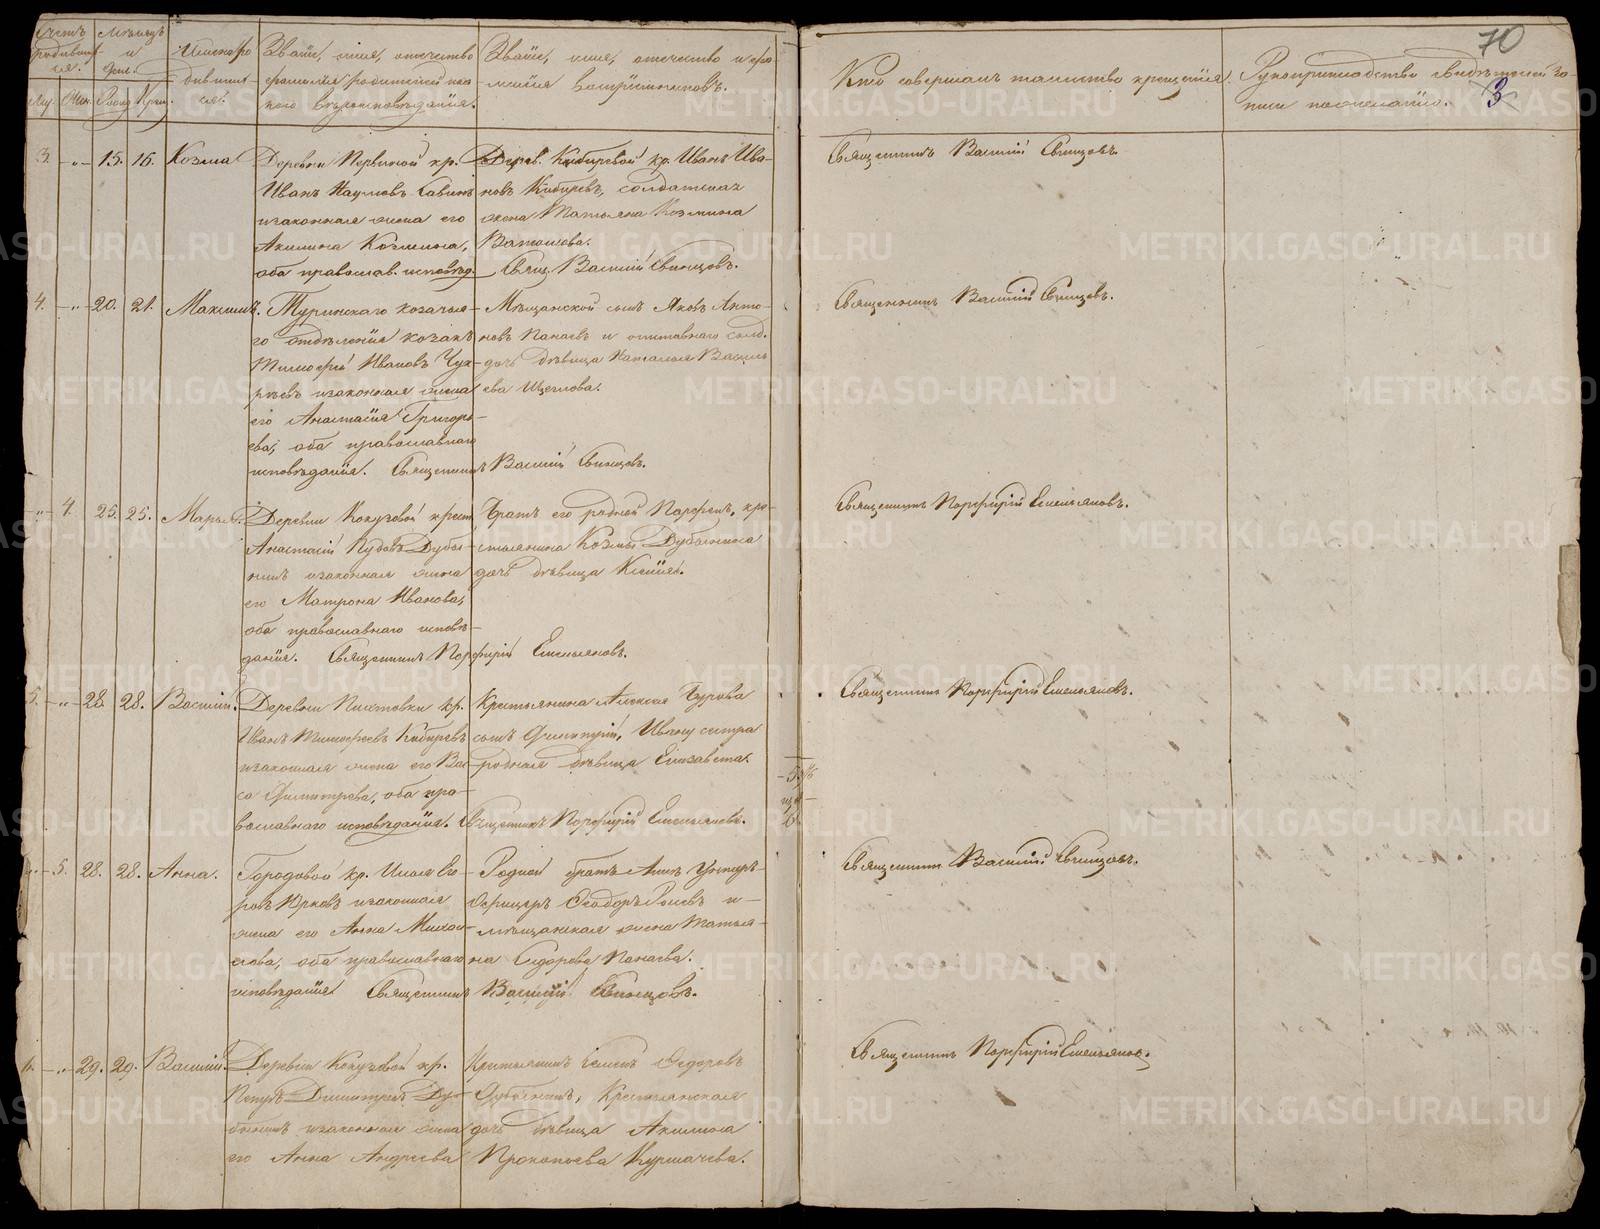 70
3
Счетъ родившихся.
Мѣсяцъ и день.
Имена родившихся.
Званіе, имя, отчество
фамилія родителей и ка-
кого вѣроисповѣданія.
Званіе, имя, отчество и фа-
милія воспріемниковъ.
Кто совершалъ таинство крещенія.
Рукоприкладство свидѣтелей за-
писи по желанію.
Му. Жен. Рожд. Крещ.
3. -„- 15. 16. Козма
Деревни Первиной кр.
Иванъ Наумовъ Савинъ
и законная жена его
Акилина Козмина,
оба православ. исповѣд.
Дерев. Кибиревой кр. Иванъ Ива-
новъ Кибиревъ, солдатская
жена Татьяна Козмина
Ватошова.
Свящ. Василій Свинцовъ.
Священникъ Василій Свинцовъ.
4. -„- 20. 21. Максимъ.
Туринскаго козачья-
го отдѣленія козакъ
Тимофей Ивановъ Чух-
ревъ и законная жена
его Анастасія Григорь-
ева, оба православнаго
исповѣданія. Священникъ Василій Свинцовъ.
Мѣщанской сынъ Яковъ Анто-
новъ Панаевъ и отставнаго солд.
дочь дѣвица Наталья Василь
ева Щеглова.
Священникъ Василій Свинцовъ.
-„- 4. 25. 25. Марья.
Деревни Кокузовой крест.
Анастасій Кудовъ Дубы-
нинъ и законная жена
его Матрона Иванова,
оба православнаго исповѣ-
данія. Священникъ Порфирій Емельяновъ.
Братъ его родной Парфенъ, кре-
стьянина Козмы Дубынина
дочь дѣвица Ксенія.
Священникъ Порфирій Емельяновъ.
5. -„- 28. 28. Василій.
Деревни Пиетовки кр.
Иванъ Тимофеевъ Кибиревъ
и законная жена его Вас-
са Димитрева, оба пра-
вославнаго исповѣданія. Священникъ Порфирій Емельяновъ.
Крестьянина Алексея Чурова
сынъ Димитрій, Ивану сестра
родная дѣвица Елизавета.
Священникъ Порфирій Емельяновъ.
-„- 5. 28. 28. Анна.
Городовой кр. Илья Его-
ровъ Юрковъ и законная
жена его Анна Михаи-
лова, оба православнаго
исповѣданія. Священникъ Василій Свинцовъ.
Родной братъ Анне Унтеръ-
Офицеръ Феодоръ и
мѣщанская жена Татья-
на Сидорова Панаева.
Священникъ Василій Свинцовъ.
6. -„- 29. 29. Василій.
Деревни Кокузовой кр.
Петръ Димитріевъ Ду-
бынинъ и законная жена
его Анна Андреева
Крестьянинъ Семенъ Федоровъ
Дубынинъ, Крестьянская
дочь дѣвица Акилина
Прокопьева Курмачева.
Священникъ Порфирій Емельяновъ.
METRIKI.GASO-URAL.RU